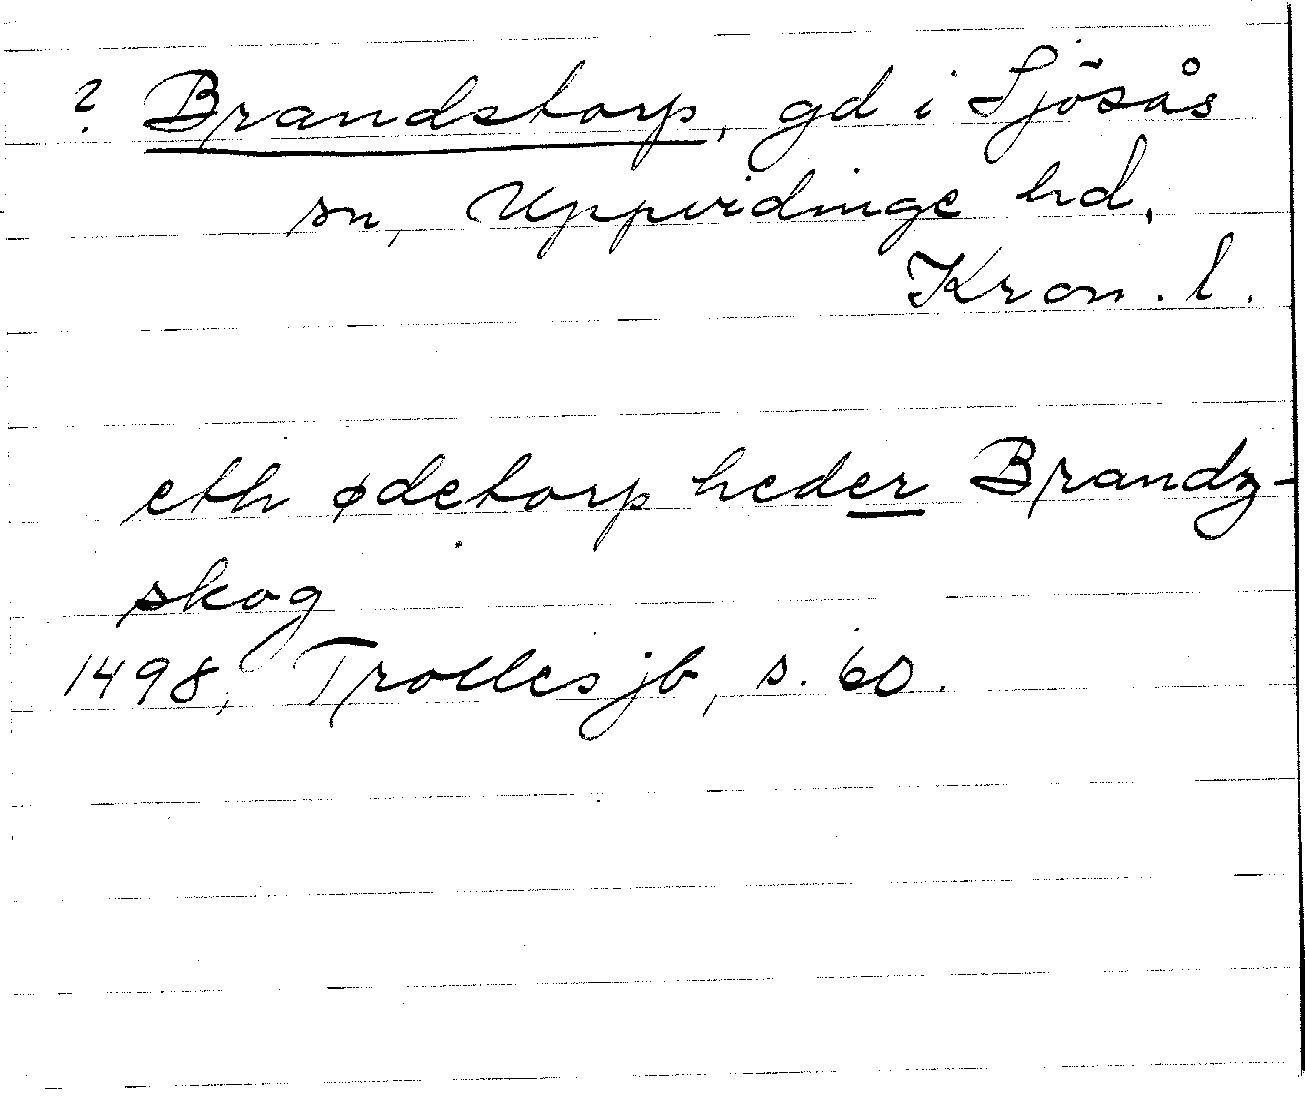 ? Brandstorp, gd i Sjösås
sn, Uppvidinge hd,
Kron. l.
eth ødetorp heder Brandz-
skog
1498, Trolles jb, s. 60.